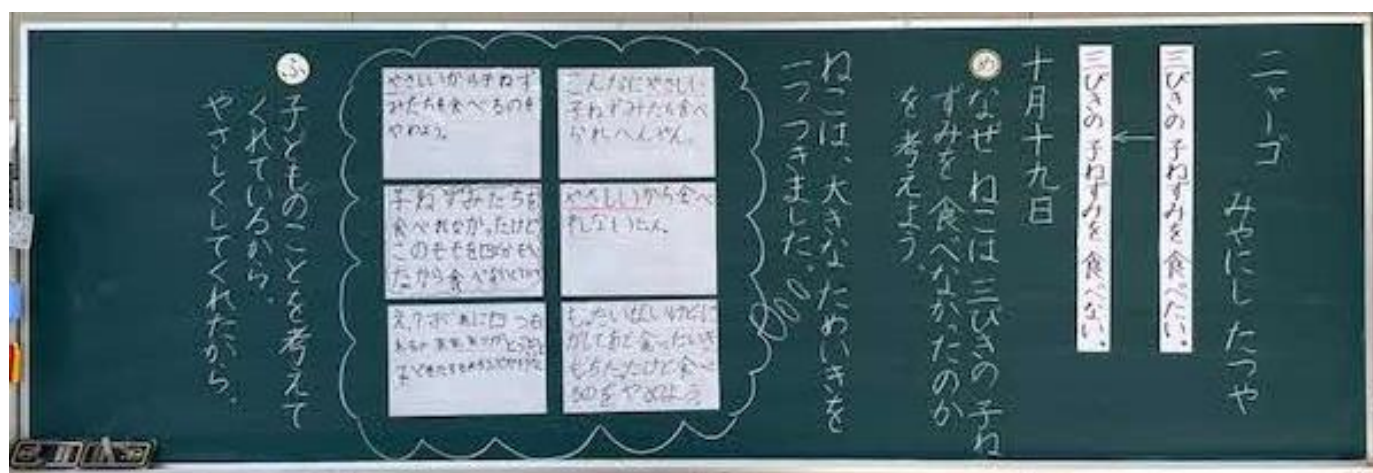 ニャーゴ
みやにし たつや
三びきの 子ねずみを 食べたい。
三びきの 子ねずみを 食べない。
十月十九日
め なぜ ねこは 三びきの 子ね
ずみを 食べなかったのか
を考えよう。
ねこは、大きなためいきを
一つつきました。
こんなにやさしい
子ねずみたちを食べ
られへんやん。
やさしいから食べ
れない
やさしいから子ねず
みたちを食べるのを
やめよう。
子ねずみたちを
食べれなかったけど
このももを
たから食べ
ふ 子どものことを考えて
くれているから。
やさしくしてくれたから。